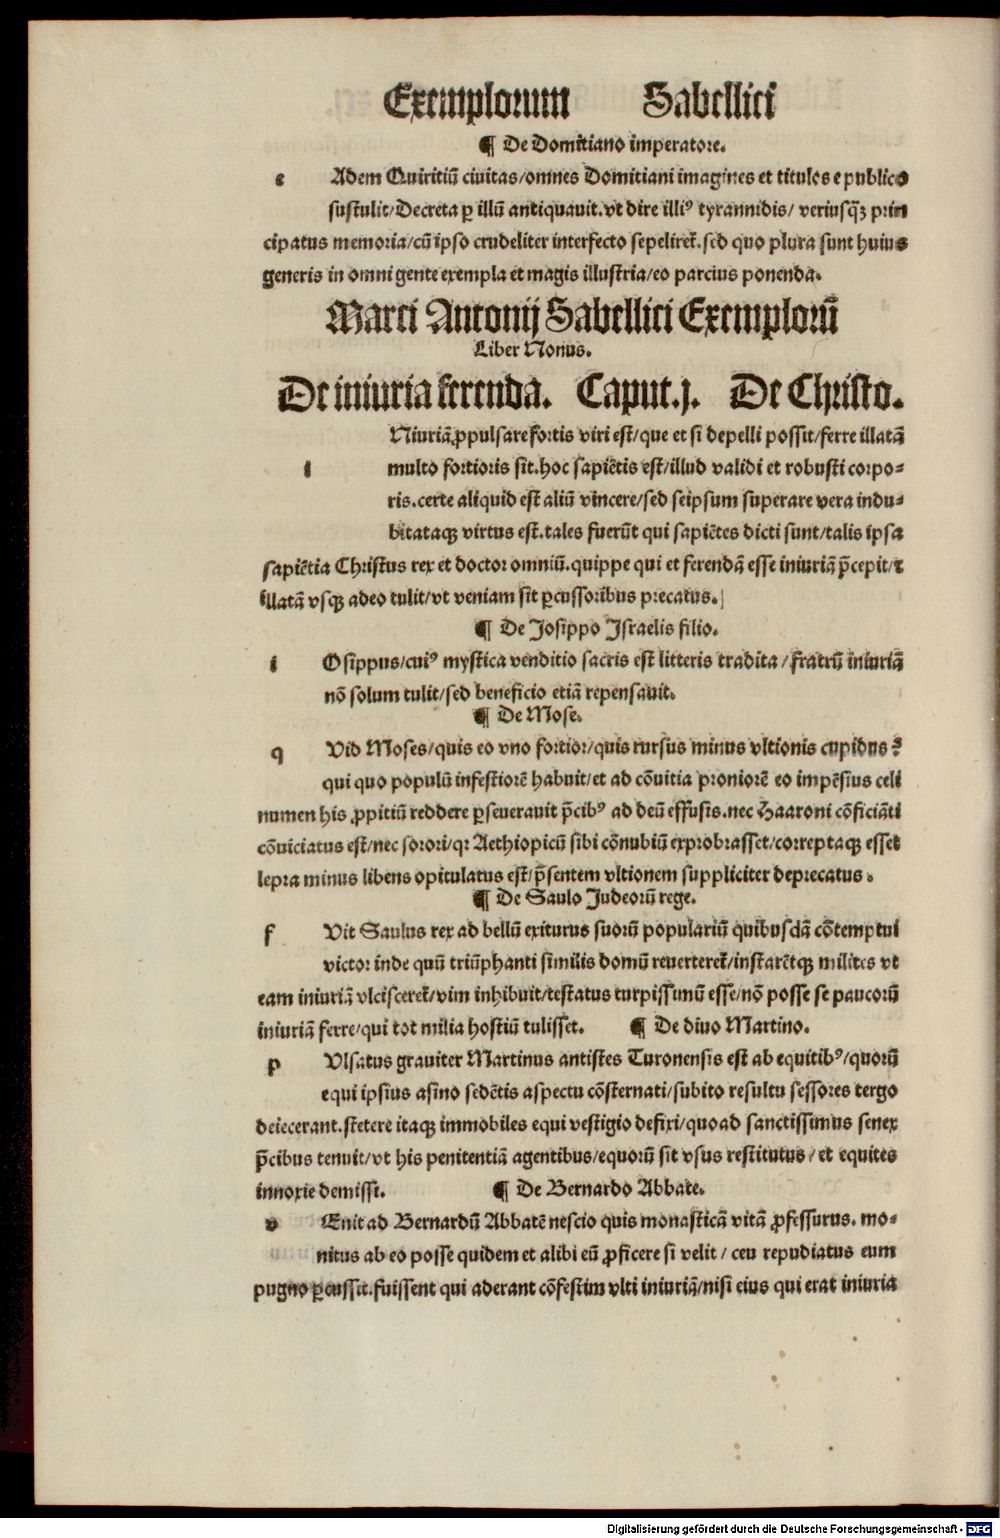 Exemplorum Sabellici
¶ De Domitiano imperatore.
e Adem Quiritiũ ciuitas/omnes Domitiani imagines et titulos e publico
sustulit/Decreta ꝑ illũ antiquauit.vt dire illiꝰ tyrannidis/ veriusqꝫ prin
cipatus memoria/cũ ipso crudeliter interfecto sepeliret᷑.sed quo plura sunt huius
generis in omni gente exempla et magis illustria/eo parcius ponenda.
Marci Antonij Sabellici Exemplorũ
Liber Nonus.
De iniuria ferenda. Caput.j. De Christo.
Niuriã ꝓpulsare fortis viri est/que et si depelli possit/ferre illatã
i multo fortioris sit.hoc sapiẽtis est/illud validi et robusti corpo-
ris.certe aliquid est aliũ vincere/sed seipsum superare vera indu-
bitataqꝫ virtus est.tales fuerũt qui sapiẽtes dicti sunt/talis ipsa
sapiẽtia Christus rex et doctor omniũ.quippe qui et ferendã esse iniuriã p̃cepit/ꝛ
illatã vsqꝫ adeo tulit/vt veniam sit ꝑcussoribus precatus.
¶ De Josippo Israelis filio.
i Osippus/cuiꝰ mystica venditio sacris est litteris tradita/fratrũ iniuriã
nõ solum tulit/sed beneficio etiã repensauit.
¶ De Mose.
q Vid Moses/quis eo vno fortior/quis rursus minus vltionis cupidus?
qui quo populũ infestiorẽ habuit/et ad cõuitia proniorẽ eo impẽsius celi
numen his ꝓpitiũ reddere ꝑseuerauit p̃cibꝰ ad deũ effusis.nec Haaroni cõficiãti
cõuiciatus est/nec sorori/qꝛ Aethiopicũ sibi cõnubiũ exprobrasset/correptaqꝫ esset
lepra minus libens opitulatus est/p̃sentem vltionem suppliciter deprecatus.
¶ De Saulo Judeorũ rege.
f Vit Saulus rex ad bellũ exiturus suorũ populariũ quibusdã cõtemptui
victor inde quũ triũphanti similis domũ reuerteret᷑/instarẽtqꝫ milites vt
eam iniuriã vlcisceret᷑/vim inhibuit/testatus turpissimũ esse/nõ posse se paucorũ
iniuriã ferre/qui tot milia hostiũ tulisset. ¶ De diuo Martino.
p Vlsatus grauiter Martinus antistes Turonensis est ab equitibꝰ/quorũ
equi ipsius asino sedẽtis aspectu cõsternati/subito resultu sessores tergo
deiecerant.stetere itaqꝫ immobiles equi vestigio defixi/quoad sanctissimus senex
p̃cibus tenuit/vt his penitentiã agentibus/equorũ sit vsus restitutus/et equites
innoxie demissi. ¶ De Bernardo Abbate.
v Enit ad Bernardũ Abbatẽ nescio quis monasticã vitã ꝓfessurus. mo-
nitus ab eo posse quidem et alibi eũ ꝓficere si velit/ ceu repudiatus eum
pugno ꝑcussit.fuissent qui aderant cõfestim vlti iniuriã/nisi eius qui erat iniuria
Digitalisierung gefördert durch die Deutsche Forschungsgemeinschaft - DFG